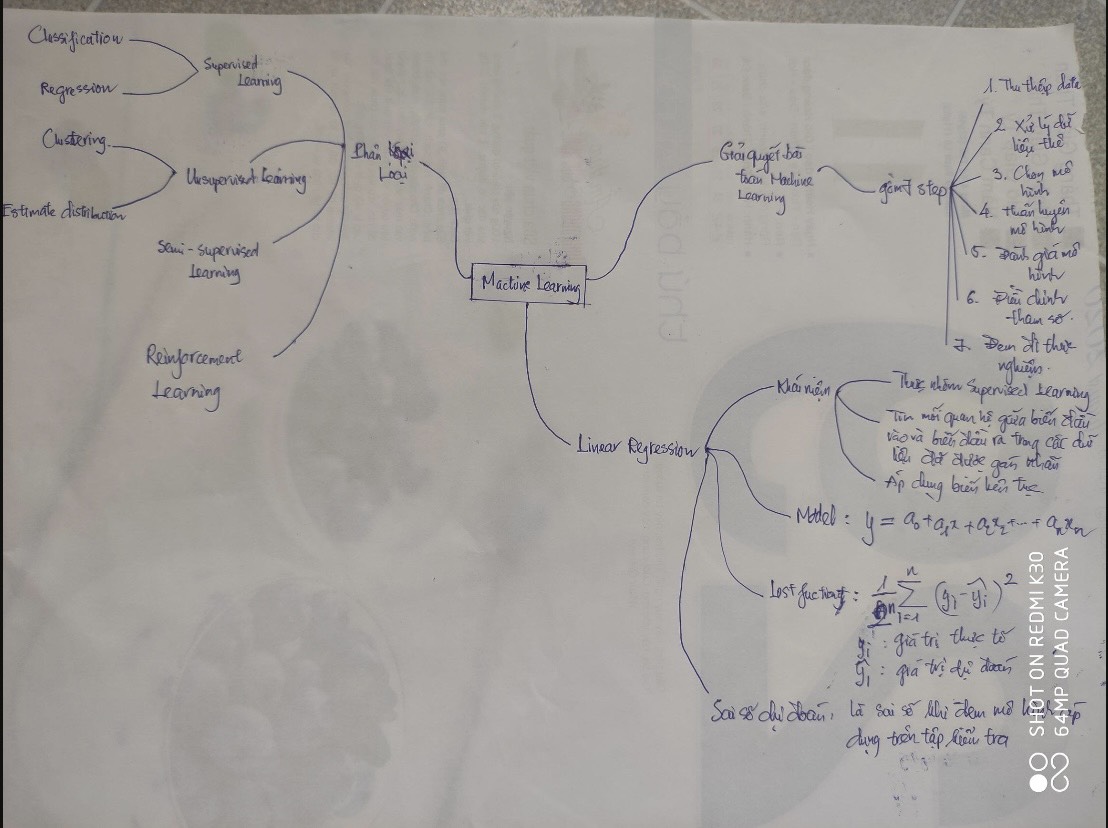 Machine Learning
Phân loại
Loại
Supervised
Learning
Classification
Regression
Unsupervised Learning
Clustering
Estimate distribution
Semi-supervised
Learning
Reinforcement
Learning
Giải quyết bài
toán Machine
Learning
gồm 7 step
1. Thu thập data
2. Xử lý dữ
liệu thô
3. Chọn mô
hình
4. Huấn luyện
mô hình
5. Đánh giá mô
hình
6. Điều chỉnh
tham số.
7. Đem đi thực
nghiệm.
Linear Regression
Khái niệm
Thuộc nhóm Supervised Learning
Tìm mối quan hệ giữa biến đầu
vào và biến đầu ra trong các dữ
liệu đã được gán nhãn
Áp dụng biến liên tục
Model: y = a₀ + a₁x + a₂x₂ + ... + aₙxₙ
Lost fuction: 1/n ∑ i=1 n (yᵢ - ŷᵢ)²
yᵢ: giá trị thực tế
ŷᵢ: giá trị dự đoán
Sai số dự đoán, là sai số khi đem mô hình áp
dụng trên tập kiểm tra
SHOT ON REDMI K30
64MP QUAD CAMERA